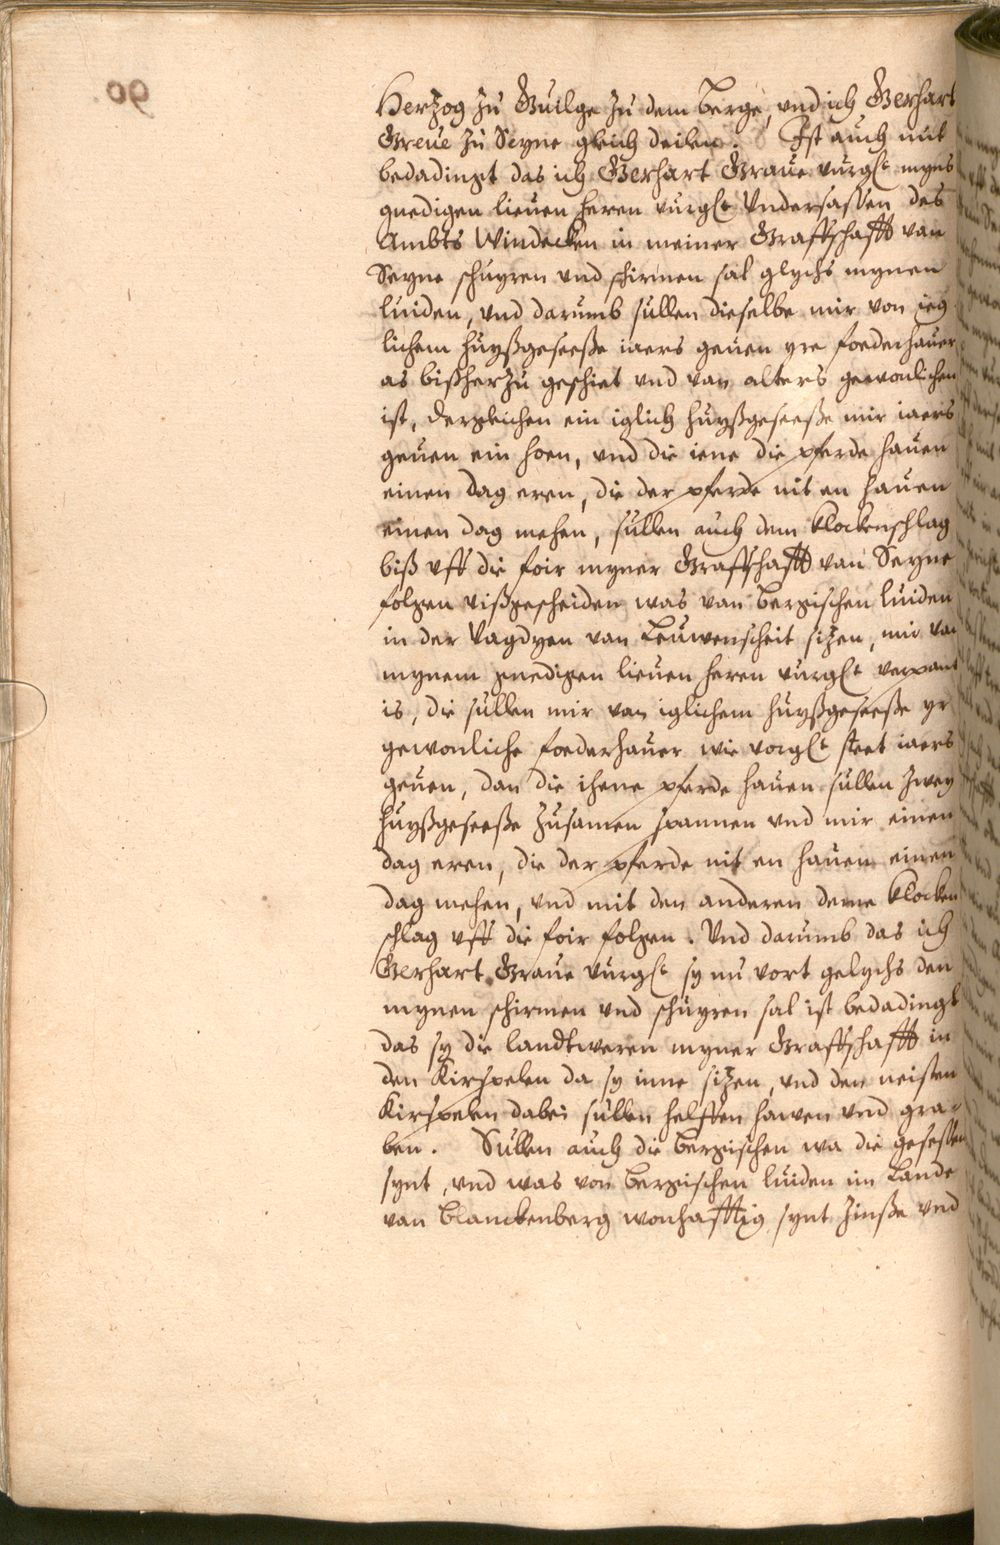 Herzog zu Guilge zu dem Berge, vnd ich Gerhart
Greue zu Seyne gleich deilen. Ist auch mit
bedadingt das ich Gerhart Graue vurgst. myns
gnedigen lieuen heren vurgst. Vndersassen des
Ambts Windecken in meiner Graffschafft van
Seyne schuyren vnd schirmen sal glychs mynen
luiden, vnd darumb sullen dieselbe mir von ieg
lichem huyßgeseeße iaers geuen yre foederhauer
as bißherzu geschiet vnd van alters gewonlichen
ist, dergleichen ein iglich huyßgeseeße mir iaers
geuen ein hoen, vnd die iene die pferde hauen
einen dag eren, die der pferde nit en hauen
einen dag mehen, sullen auch dem klockenschlag
biß vff die foir myner Graffschafft van Seyne
folgen vißgescheiden was van Bergischen luiden
in der Vagdyen van Leuwenscheit sizen, mir van
mynem gnedigen lieuen heren vurgst. verpant
is, die sullen mir van iglichem huyßgeseeße yr
gewonliche foederhauer wie vorgst. steet iaers
geuen, dan die ihene pferde hauen sullen zwey
huyßgeseeße zusamen spannen vnd mir einen
dag eren, die der pferde nit en hauen einen
dag mehen, vnd mit den anderen deme klocken
schlag vff die foir folgen. Vnd darumb das ich
Gerhart Graue vurgst. sy nu vort gelychs den
mynen schirmen vnd schuyren sal ist bedadingt
das sy die landtweren myner Graffschafft in
den Kirspelen da sy inne sizen, vnd den neisten
Kirspelen dabei sullen helffen hawen vnd gra-
ben. Sullen auch die Bergischen wa die gesessen
synt, vnd was von Bergischen luiden im Lande
van Blanckenberg wonhafftig synt zinße vnd